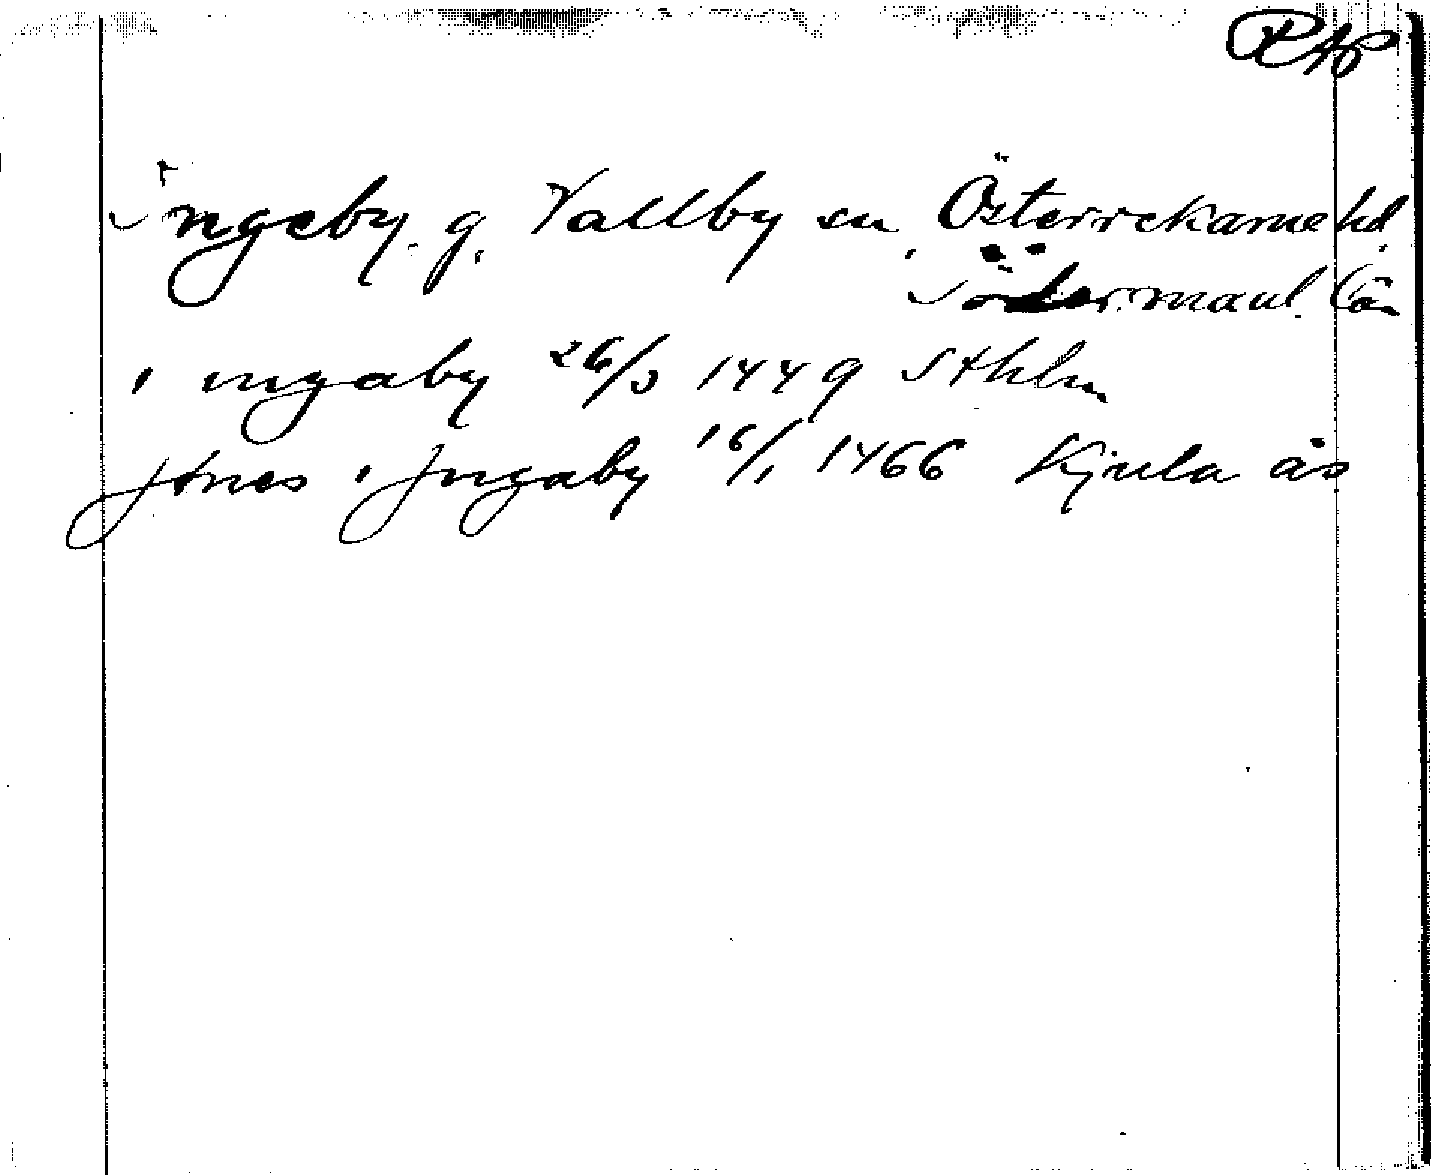 RAP
Ingeby. g. Vallby sn, Österrekarne hd.
Södermanl. län
i ingaby 26/3 1449 Sthlm
Jönes i Jngaby 16/1 1466 Kjula ås